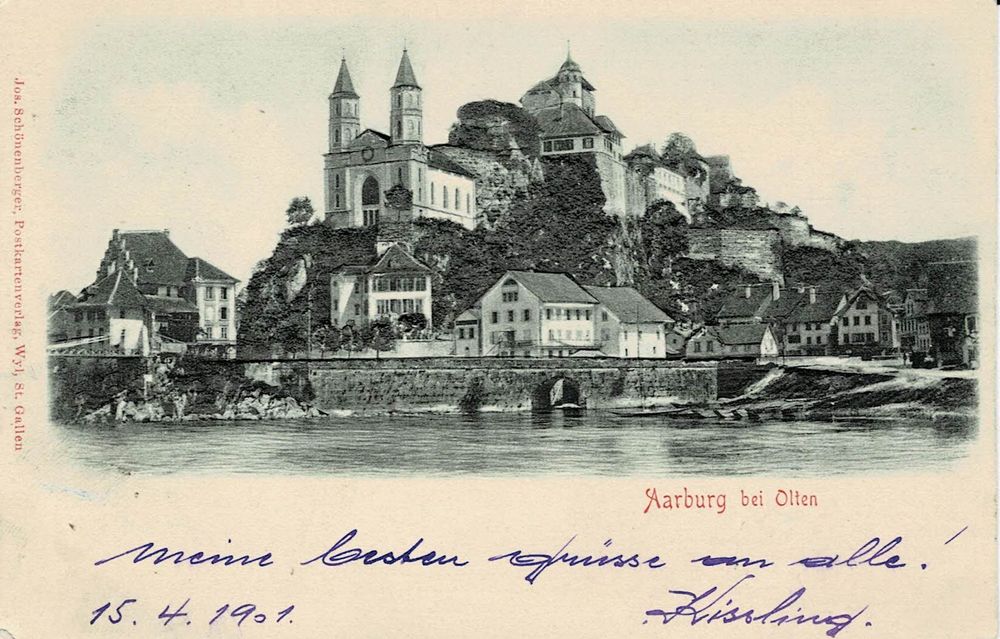 Jos. Schönenberger, Postkartenverlag, Wyl, St. Gallen
Aarburg bei Olten
meine besten grüsse an alle!
15. 4. 1901.
Kissling.